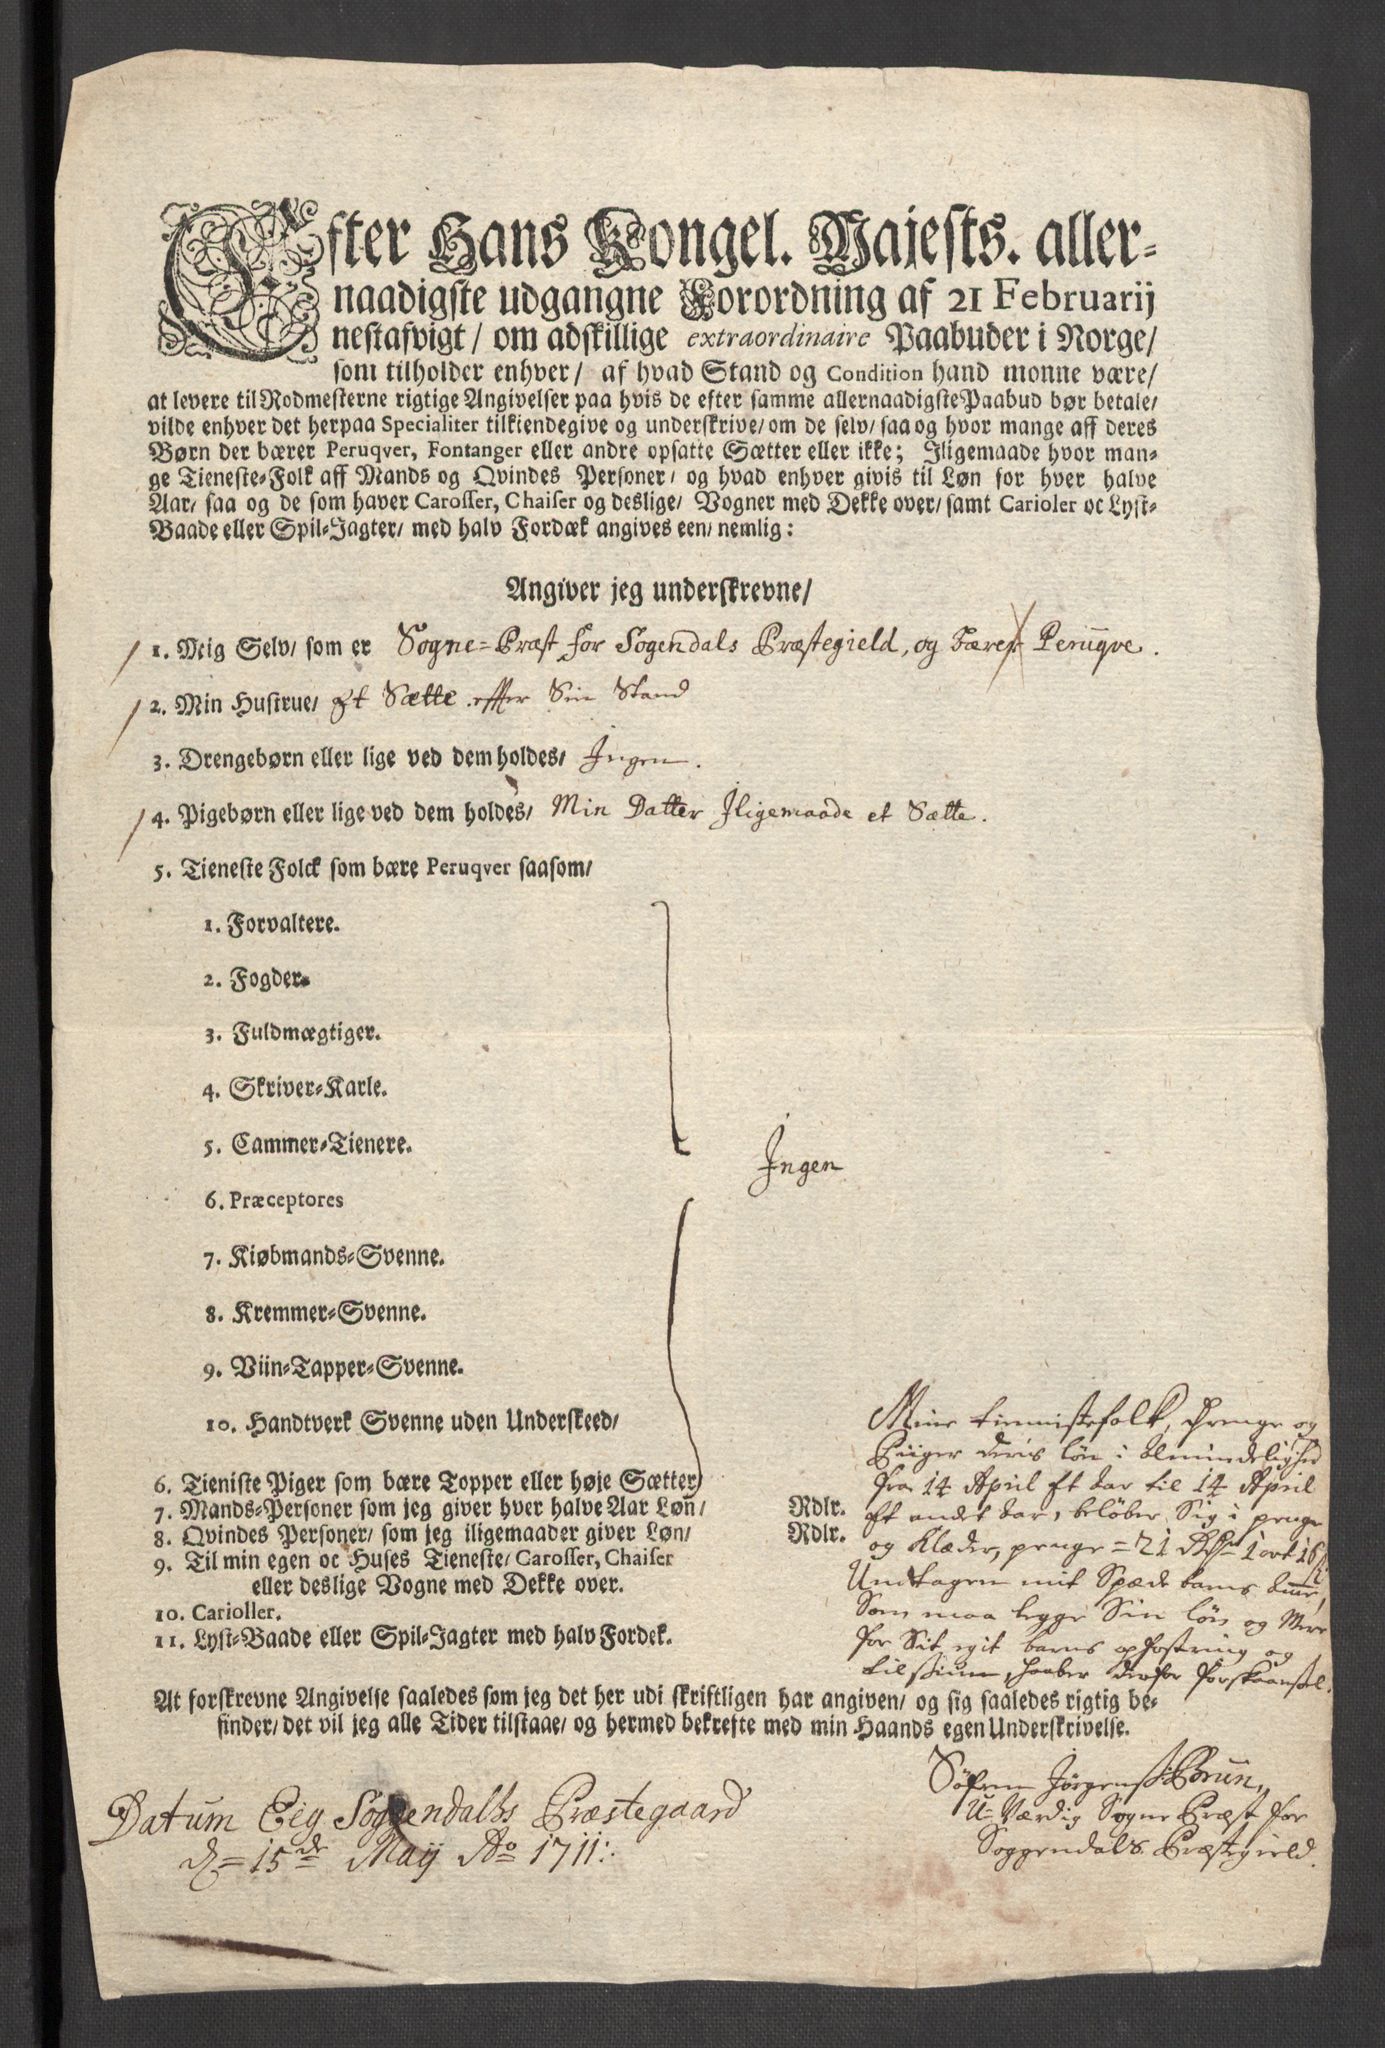 Efter Hans Kongel. Majests. aller-
naadigste udgangne Forordning af 21 Februarij
nestafvigt/ om adskillige extraordinaire Paabuder i Norge/
som tilholder enhver/ af hvad Stand og Condition hand monne være/
at levere til Rodmesterne rigtige Angivelser paa hvis de efter samme allernaadigste Paabud bør betale/
vilde enhver det herpaa Specialiter tilkiendegive og underskrive/ om de selv/ saa og hvor mange aff deres
Børn der bærer Peruqver, Fontanger eller andre opsatte Sætter eller ikke; Iligemaade hvor man-
ge Tieneste-Folk aff Mands og Qvindes Personer/ og hvad enhver givis til Løn for hver halve
Aar/ saa og de som haver Carosser, Chaiser og deslige/ Vogner med Dekke over/ samt Carioler oc Lyst-
Baade eller Spil-Jagter/ med halv Fordæk angives een/ nemlig:
Angiver jeg underskrevne/
1. Mig Selv/ som er Sogne-Præst for Sogendals Præstegield, og bærer Peruqve.
2. Min Hustrue/ Et Sætte effter Sin Stand
3. Drengebørn eller lige ved dem holdes/ Ingen.
4. Pigebørn eller lige ved dem holdes/ Min Datter Iligemaade et Sætte.
5. Tieneste Folck som bære Peruqver saasom/
1. Forvaltere.
2. Fogder.
3. Fuldmægtiger.
4. Skriver-Karle.
5. Cammer-Tienere.
Ingen
6. Præceptores
7. Kiøbmands-Svenne.
8. Kremmer-Svenne.
9. Viin-Tapper-Svenne.
10. Handtverk Svenne uden Underskeed/
6. Tieniste Piger som bære Topper eller høje Sætter/
7. Mands-Personer som jeg giver hver halve Aar Løn/ Rdlr.
8. Qvindes Personer/ som jeg iligemaader giver Løn/ Rdlr.
9. Til min egen oc Huses Tieneste/ Carosser, Chaiser
eller deslige Vogne med Dekke over.
10. Carioller.
11. Lyst-Baade eller Spil-Jagter med halv Fordek.
Mine tiennistefolk, Drenge og
Piiger deris løn i Almindelighed
fra 14 April et Aar til 14 April
et andet Aar, beløber Sig i penge
og Klæder, penge = 21 1 ort 16
Undtagen mit Spæde barns
Som maa legge Sin løn og Mere
for Sit egit barns opfostring og
haaber derfor forskaansel.
At forskrevne Angivelse saaledes som jeg det her udi skriftligen har angiven/ og sig saaledes rigtig be-
finder/ det vil jeg alle Tider tilstaae/ og hermed bekrefte med min Haands egen Underskrivelse.
Datum Eig Soggendalhs Præstegaard
d = 15de Maij Ao 1711:
Søfren Jørgens: Bruun,
U-Værdig Sogne Præst for
Soggendals Præstegield.